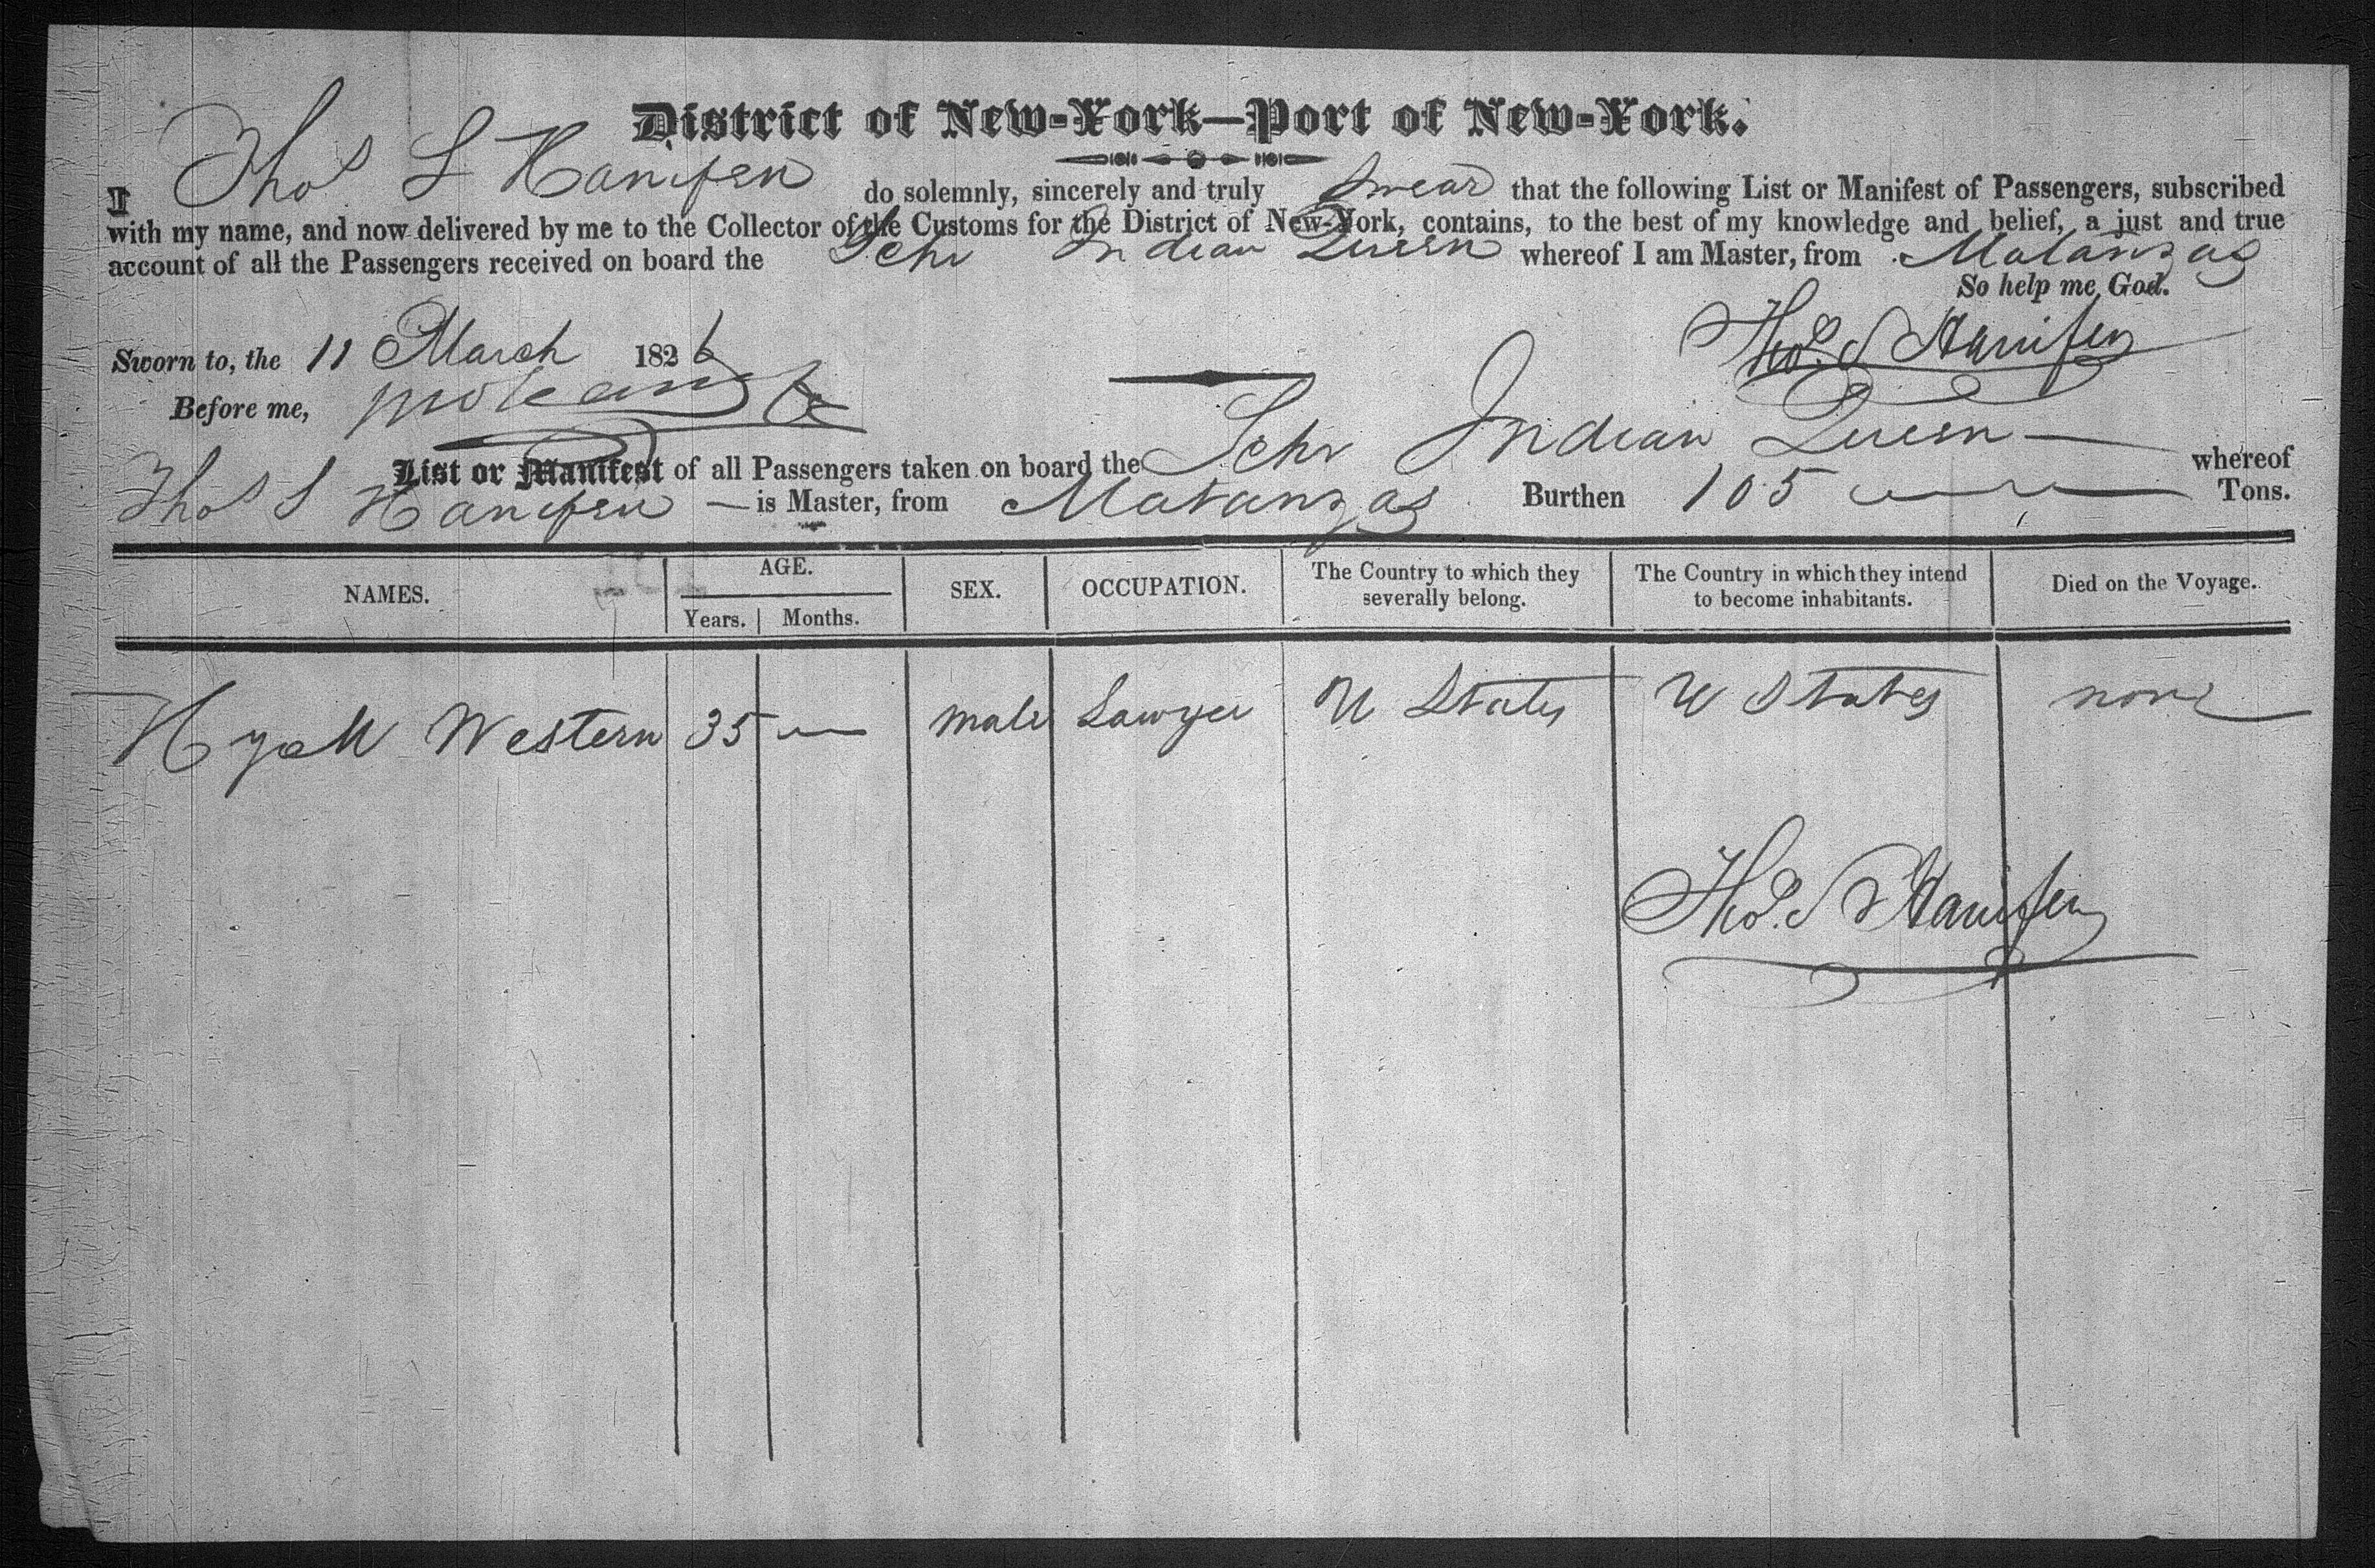 District of New-York—Port of New-York.
I Thos S Hanifen do solemnly, sincerely and truly swear that the following List or Manifest of Passengers, subscribed
with my name, and now delivered by me to the Collector of the Customs for the District of New-York, contains, to the best of my knowledge and belief, a just and true
account of all the Passengers received on board the Schr Indian Queen whereof I am Master, from Matanzas
So help me God.
Sworn to, the 11 March 1826
Thos. S Hanifen
Before me,
List or Manifest of all Passengers taken on board the Schr Indian Queen — whereof
Thos S Hanifen — is Master, from Matanzas Burthen 105 Tons.
NAMES. AGE. SEX. OCCUPATION. The Country to which they severally belong. The Country in which they intend to become inhabitants. Died on the Voyage.
Years. Months.
Western 35 — male Lawyer U States U States none
Thos. S Hanifen